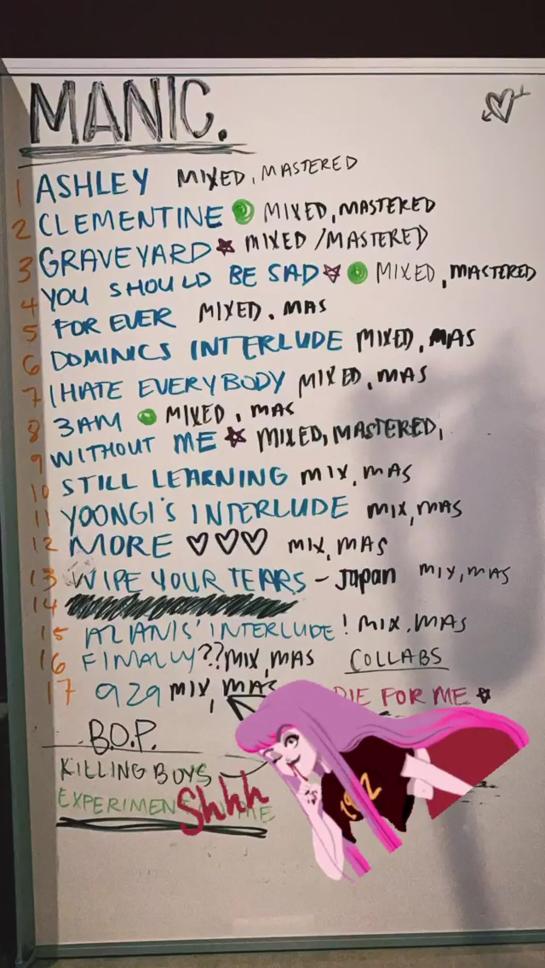 MANIC.
1 ASHLEY MIXED, MASTERED
2 CLEMENTINE MIXED, MASTERED
3 GRAVEYARD MIXED /MASTERED
4 YOU SHOULD BE SAD MIXED, MASTERED
5 FOR EVER MIXED, MAS
6 DOMINICS INTERLUDE MIXED, MAS
7 I HATE EVERYBODY MIXED, MAS
8 3AM MIXED, MAS
9 WITHOUT ME MIXED, MASTERED,
10 STILL LEARNING MIX, MAS
11 YOONGI'S INTERLUDE MIX, MAS
12 MORE ♡♡♡ MIX, MAS
13 WIPE YOUR TEARS - JAPAN MIX, MAS
14
15 ALANIS' INTERLUDE! MIX, MAS
16 FINALLY?? MIX, MAS COLLABS
17 929 MIX, MAS DIE FOR ME
B.O.P.
KILLING BOYS
EXPERIMEN ME
Shhh
192